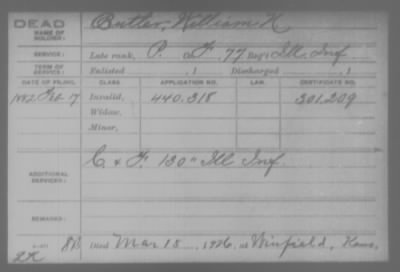 DEAD Butler, William H
NAME OF SOLDIER:
SERVICE: Late rank, P. Co F, 77 Reg't Ill. Inf
TERM OF SERVICE: Enlisted , 1 Discharged , 1
DATE OF FILING. CLASS APPLICATION NO. LAW. CERTIFICATE NO.
1882, Feb 17 Invalid, 440.318 301.209
Widow,
Minor,
C. & F. 130" Ill Inf
ADDITIONAL SERVICES:
REMARKS:
Died Mar 15, 1926, at Winfield, Kans,